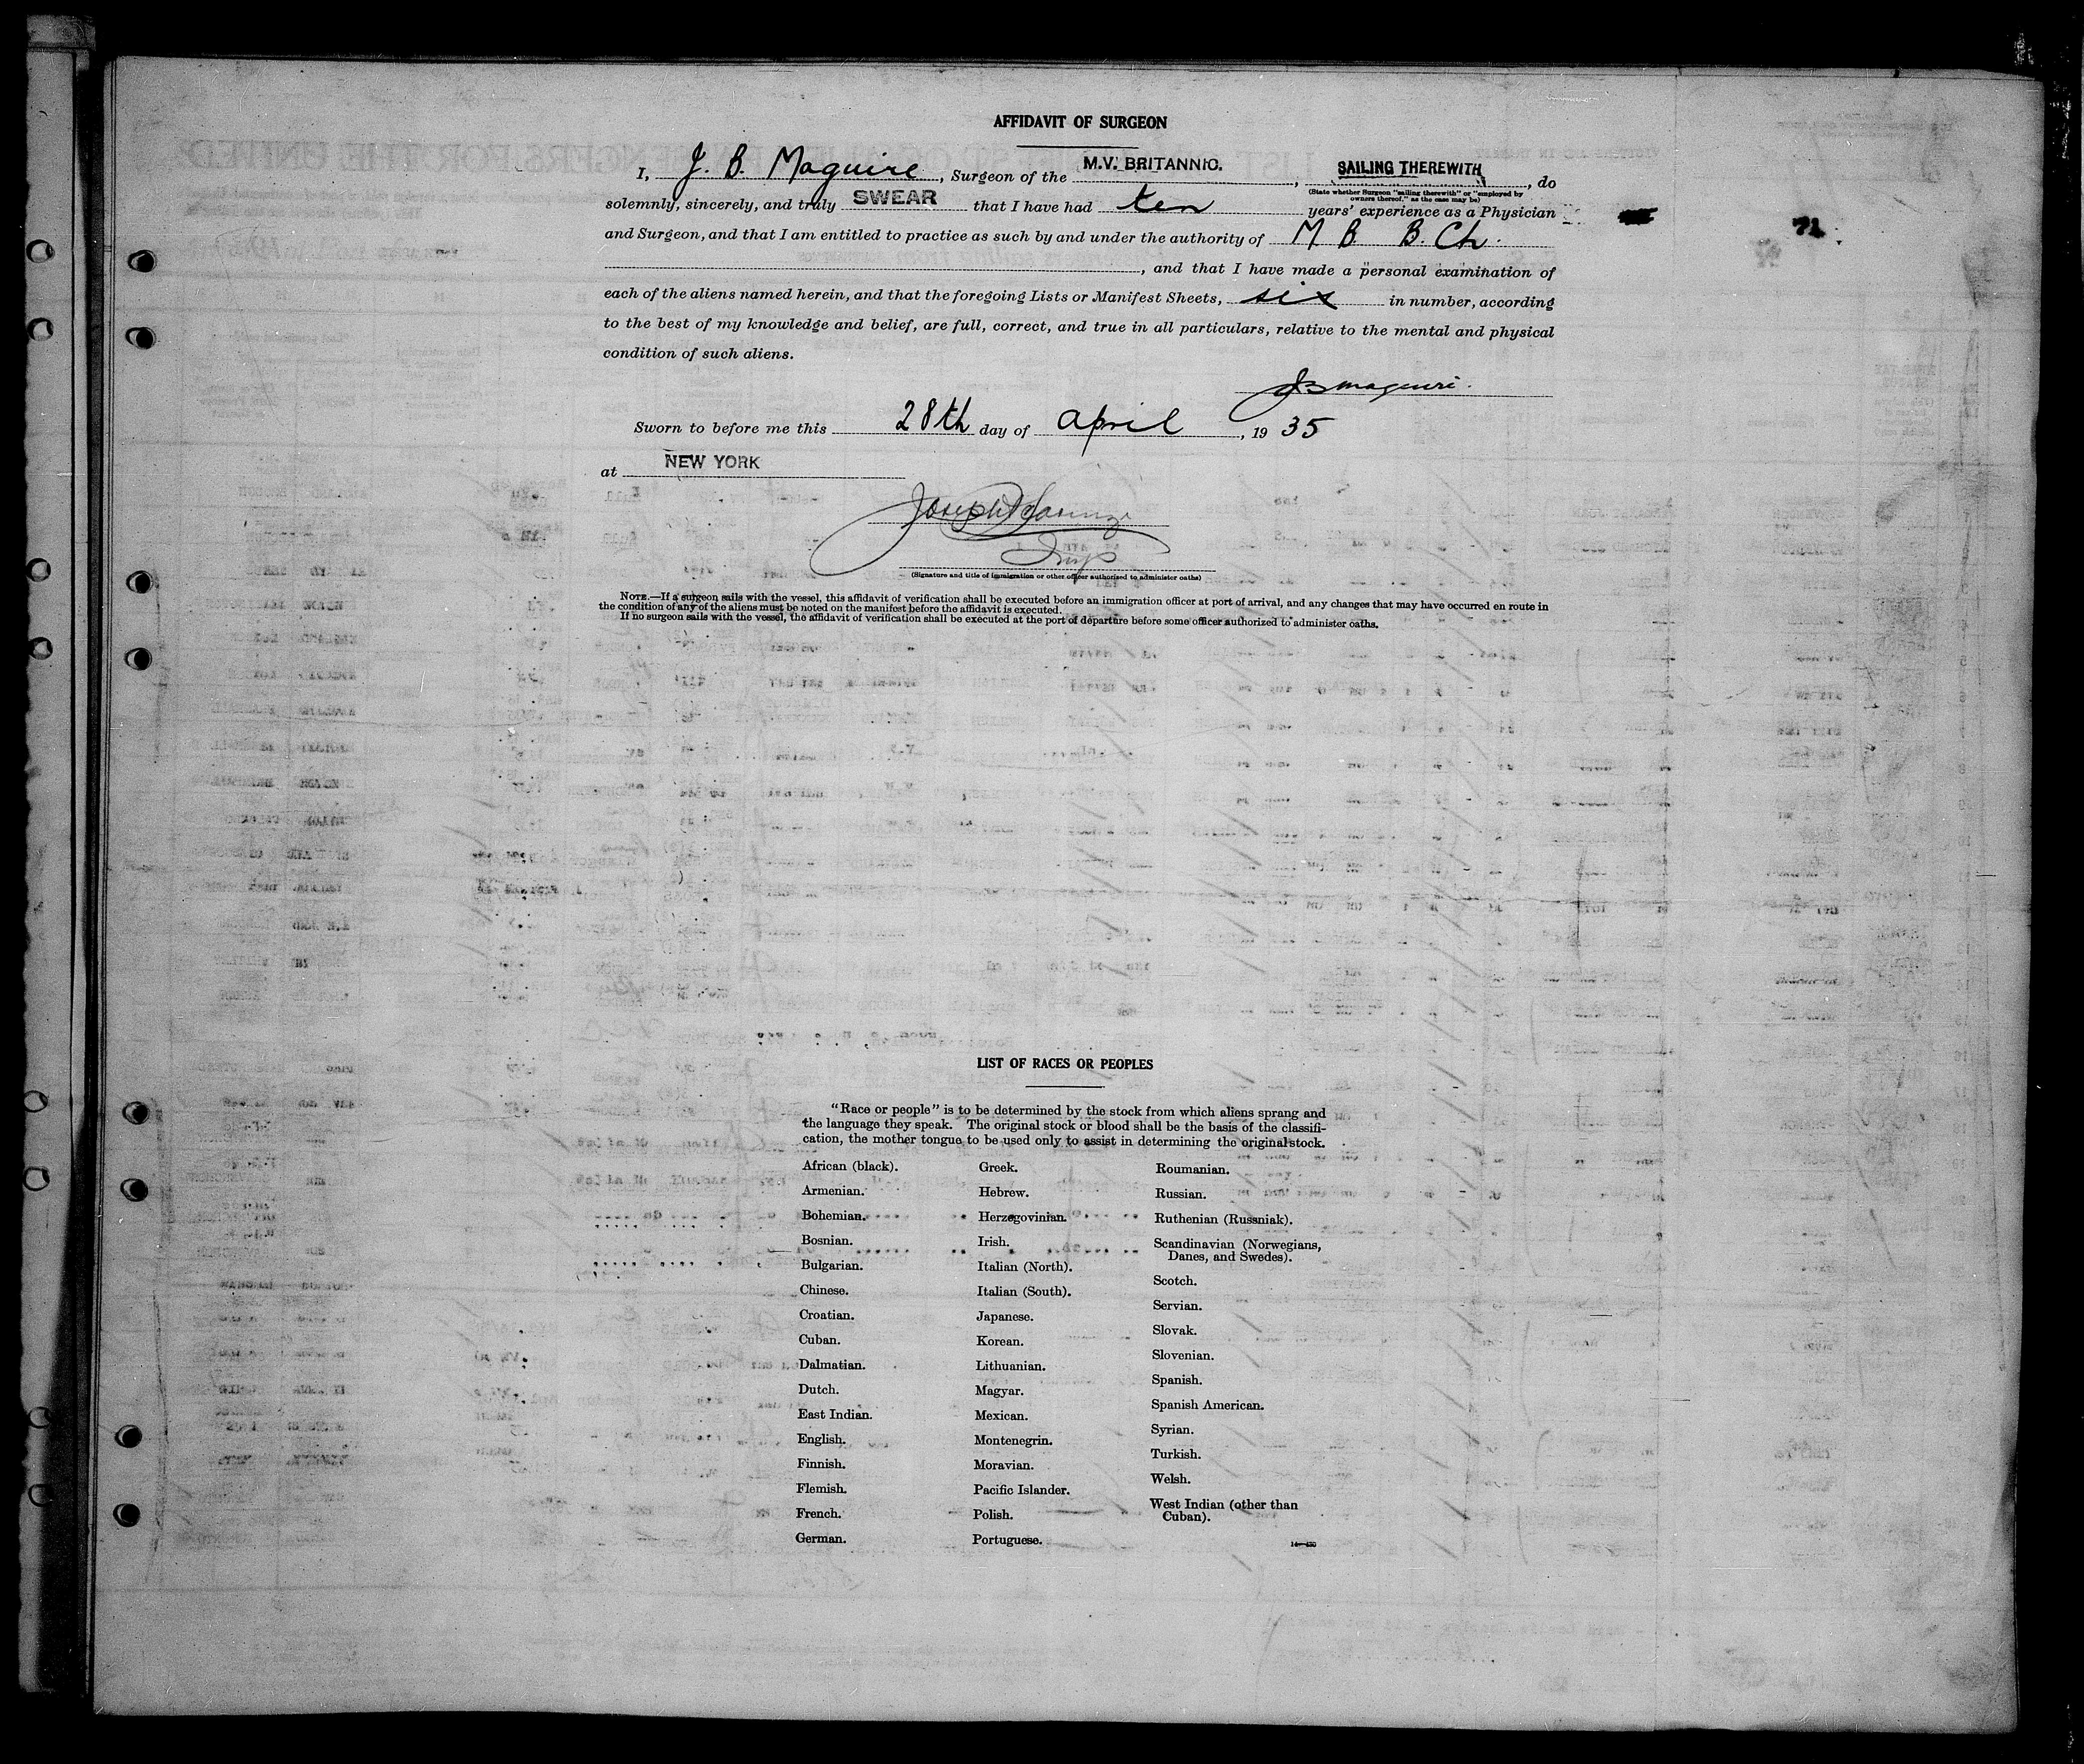 AFFIDAVIT OF SURGEON
I, J. B. Maguire, Surgeon of the M.V. BRITANNIC., SAILING THEREWITH, do
(State whether Surgeon "sailing therewith" or "employed by
owners thereof," as the case may be)
solemnly, sincerely, and truly SWEAR that I have had ten years' experience as a Physician
and Surgeon, and that I am entitled to practice as such by and under the authority of M B B. Ch.
, and that I have made a personal examination of
each of the aliens named herein, and that the foregoing Lists or Manifest Sheets, six in number, according
to the best of my knowledge and belief, are full, correct, and true in all particulars, relative to the mental and physical
condition of such aliens.
71
JB Maguire.
Sworn to before me this 28th day of April, 1935
at NEW YORK
Joseph
Insp
(Signature and title of immigration or other officer authorized to administer oaths)
NOTE.—If a surgeon sails with the vessel, this affidavit of verification shall be executed before an immigration officer at port of arrival, and any changes that may have occurred en route in
the condition of any of the aliens must be noted on the manifest before the affidavit is executed.
If no surgeon sails with the vessel, the affidavit of verification shall be executed at the port of departure before some officer authorized to administer oaths.
LIST OF RACES OR PEOPLES
"Race or people" is to be determined by the stock from which aliens sprang and
the language they speak. The original stock or blood shall be the basis of the classifi-
cation, the mother tongue to be used only to assist in determining the original stock.
African (black).
Armenian.
Bohemian.
Bosnian.
Bulgarian.
Chinese.
Croatian.
Cuban.
Dalmatian.
Dutch.
East Indian.
English.
Finnish.
Flemish.
French.
German.
Greek.
Hebrew.
Herzegovinian.
Irish.
Italian (North).
Italian (South).
Japanese.
Korean.
Lithuanian.
Magyar.
Mexican.
Montenegrin.
Moravian.
Pacific Islander.
Polish.
Portuguese.
Roumanian.
Russian.
Ruthenian (Russniak).
Scandinavian (Norwegians,
Danes, and Swedes).
Scotch.
Servian.
Slovak.
Slovenian.
Spanish.
Spanish American.
Syrian.
Turkish.
Welsh.
West Indian (other than
Cuban).